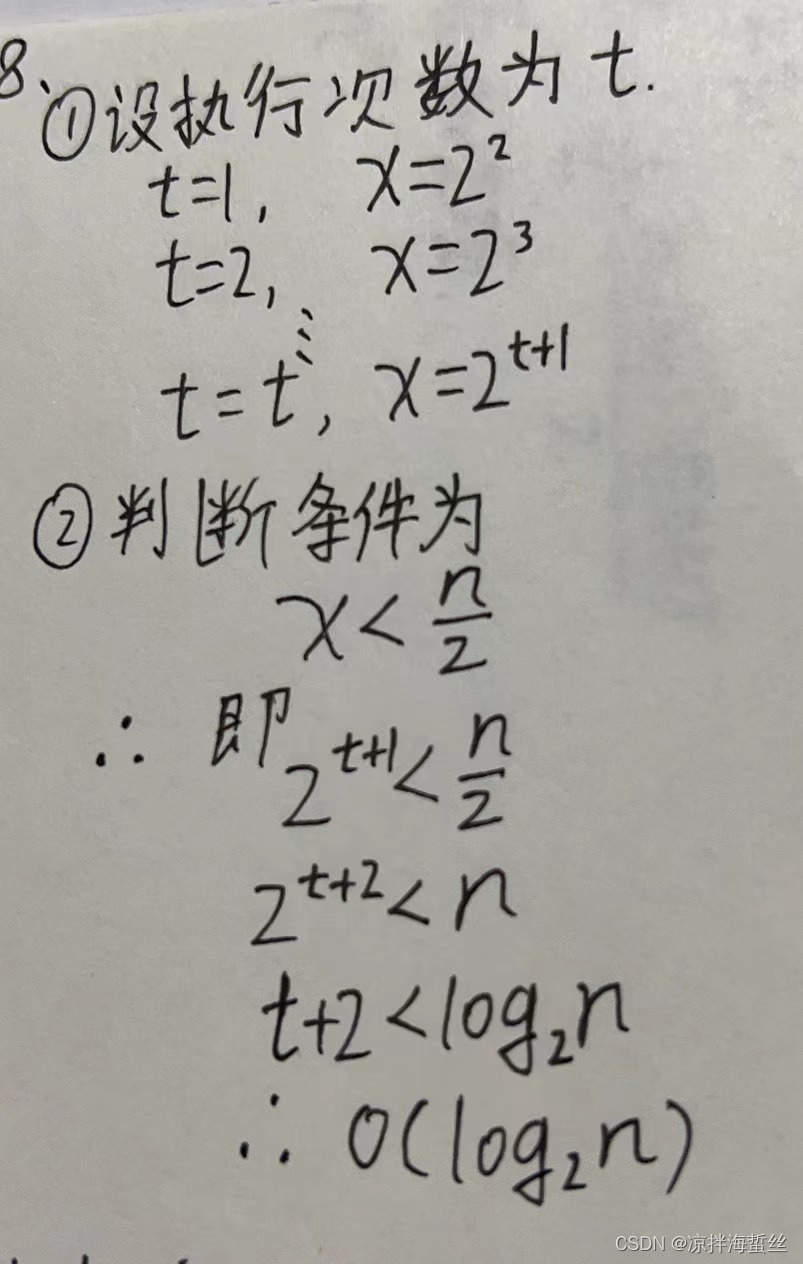 8、①设执行次数为t.
t=1, x=2²
t=2, x=2³
⋮
t=t, x=2^{t+1}
②判断条件为
x<n/2
∴ 即
2^{t+1}<n/2
2^{t+2}<n
t+2<log₂n
∴ O(log₂n)
CSDN @凉拌海蜇丝